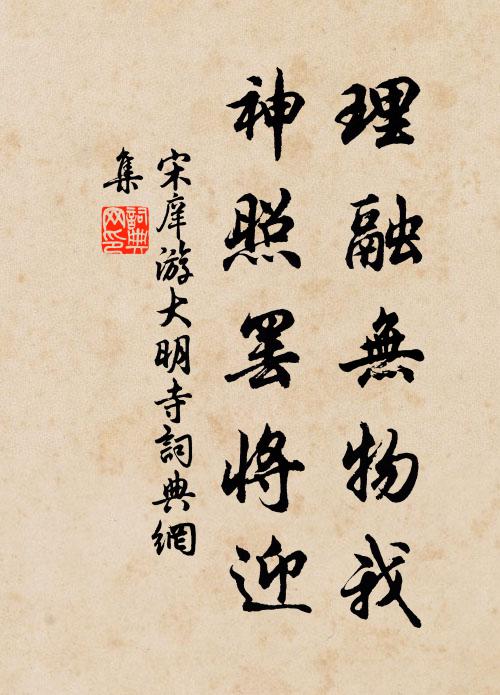 理融無物我
神照罢將迎
宋庠游大明寺詞典網
集
詞典
网印